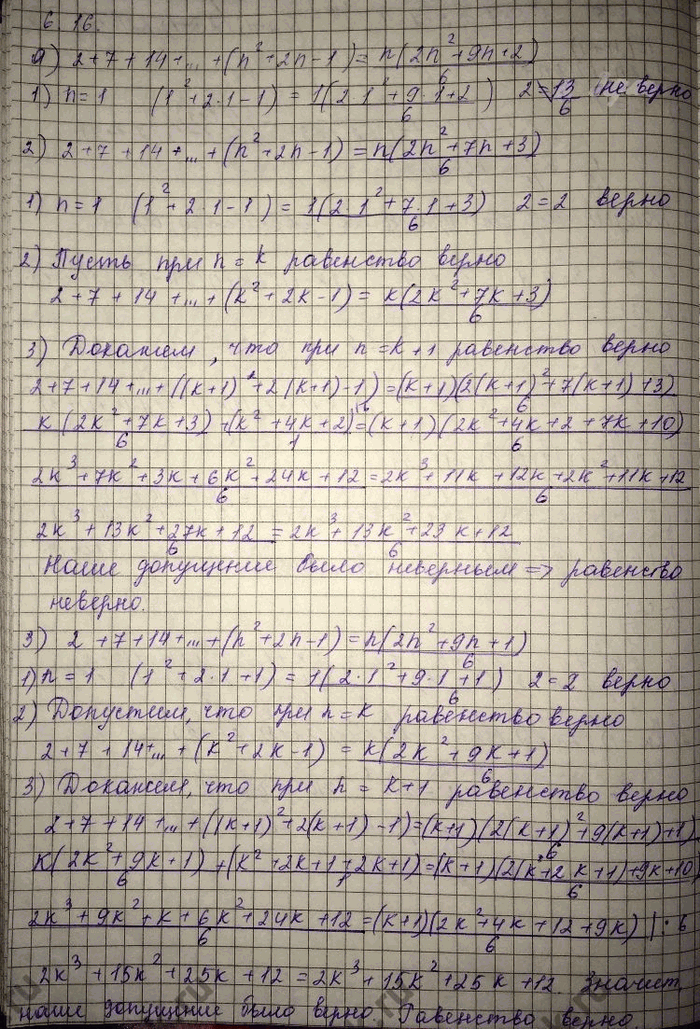 6.16.
а) 2+7+14+...+(n²+2n-1)=n(2n²+9n+2)/6
1) n=1 (1²+2·1-1)=1(2·1²+9·1+2)/6 2=13/6 (не верно
2) 2+7+14+...+(n²+2n-1)=n(2n²+7n+3)/6
1) n=1 (1²+2·1-1)=1(2·1²+7·1+3)/6 2=2 верно
2) Пусть при n=k равенство верно
2+7+14+...+(k²+2k-1)=k(2k²+7k+3)/6
3) Докажем, что при n=k+1 равенство верно
2+7+14+...+((k+1)²+2(k+1)-1)=(k+1)(2(k+1)²+7(k+1)+3)/6
k(2k²+7k+3)/6+(k²+4k+2)/1=(k+1)(2k²+4k+2+7k+10)/6
2k³+7k²+3k+6k²+24k+12/6=2k³+11k+12k+2k²+11k+12/6
2k³+13k²+27k+12/6=2k³+13k²+23k+12/6
Наше допущение было неверным => равенство
неверно.
3) 2+7+14+...+(n²+2n-1)=n(2n²+9n+1)/6
1) n=1 (1²+2·1+1)=1(2·1²+9·1+1)/6 2=2 верно
2) Допустим, что при n=k равенство верно
2+7+14+...+(k²+2k-1)=k(2k²+9k+1)/6
3) Докажем, что при n=k+1 равенство верно
2+7+14+...+((k+1)²+2(k+1)-1)=(k+1)(2(k+1)²+9(k+1)+1)/6
k(2k²+9k+1)/6+(k²+2k+1+2k+1)/1=(k+1)(2(k²+2k+1)+9k+10)/6
2k³+9k²+k+6k²+24k+12/6=(k+1)(2k²+4k+12+9k)/6 |:6
2k³+15k²+25k+12=2k³+15k²+25k+12. Значит,
наше допущение было верно. Равенство верно